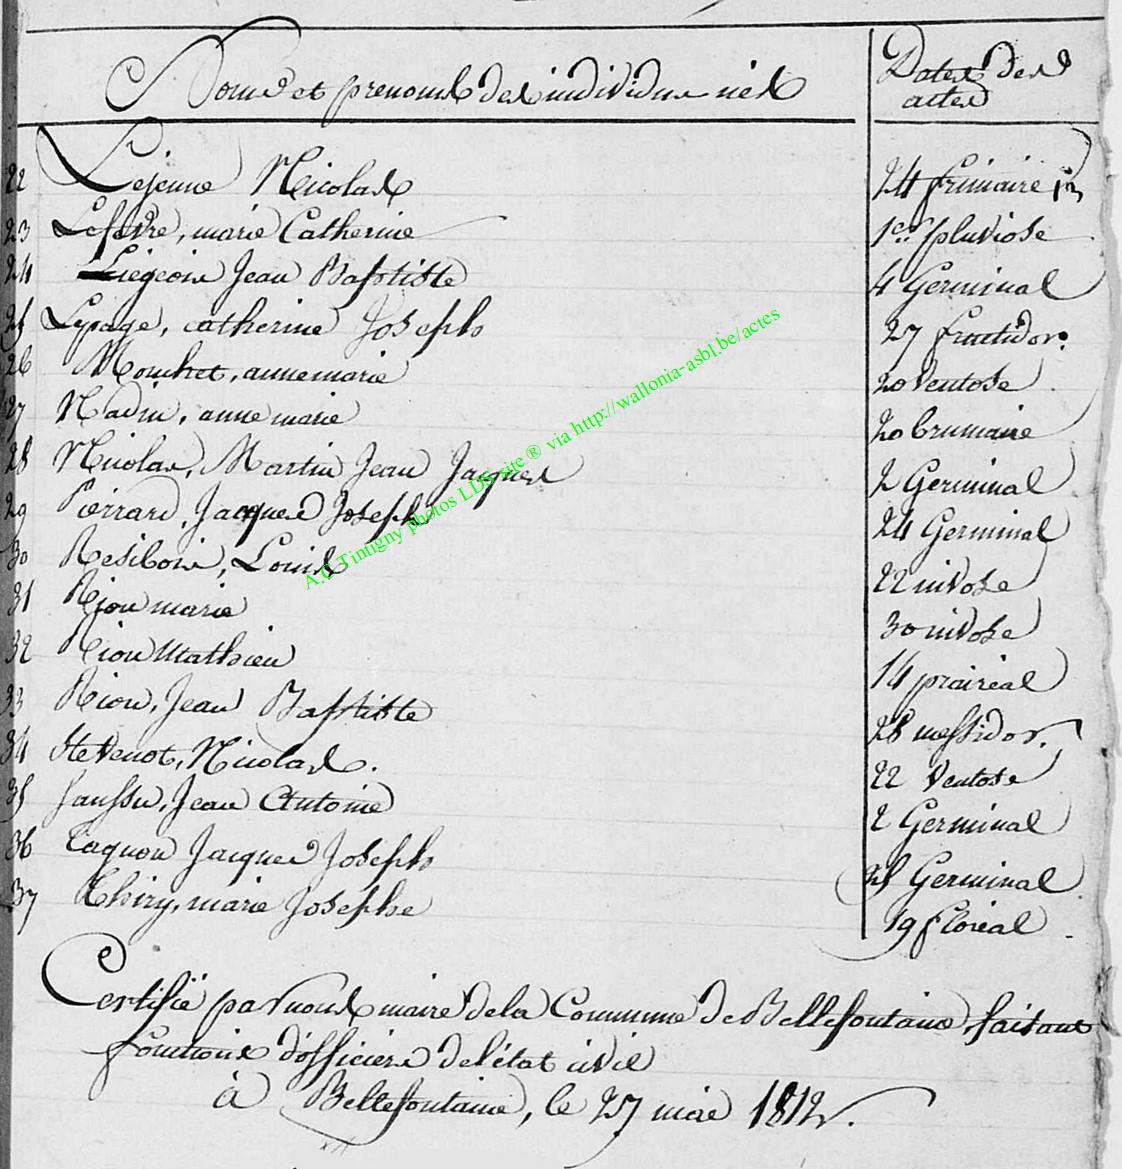 Noms et prenoms des individus nés
Dates des
actes
22 Lejeune Nicolas 24 frimaire
23 Lefevre, marie Catherine 1er pluviose
24 Liegeois Jean Baptiste 4 Germinal
25 Lepage, catherine Joseph 27 fructidor.
26 Mouchet, anne marie 20 Ventose
27 Nadin, anne marie 20 brumaire
28 Nicolas, Martin Jean Jacques 2 Germinal
29 Pierrard, Jacques Joseph 24 Germinal
30 Resibois, Louis 22 nivose
31 Rion marie 30 nivose
32 Rion Mathieu 14 prairéal
33 Rion, Jean Baptiste 28 messidor.
34 Stevenot, Nicolas. 22 Ventose
35 Jean Antoine 2 Germinal
36 Tagnon Jacques Joseph 25 Germinal
37 Thiry, marie Josephe 19 floréal
Certifié par nous maire de la Commune de Bellefontaine, faisant
fonctions d'officiers de l'état civil
à Bellefontaine, le 27 mai 1812.
A.C Tintigny photos LDS site ® via http://wallonia-asbl.be/actes